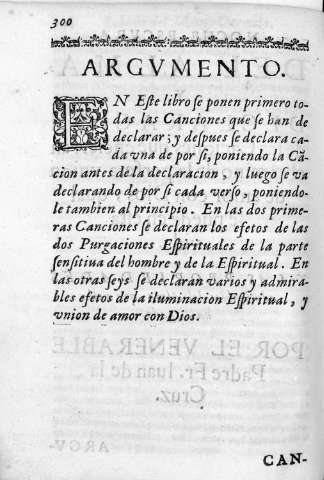 300
ARGVMENTO.
EN Este libro se ponen primero to-
das las Canciones que se han de
declarar; y despues se declara ca-
da vna de por si, poniendo la Cã
cion antes de la declaracion, y luego se va
declarando de por si cada verso, poniendo-
le tambien al principio. En las dos prime-
ras Canciones se declaran los efetos de las
dos Purgaciones Espirituales de la parte
sensitiua del hombre y de la Espiritual. En
las otras seys se declaran varios y admira-
bles efetos de la iluminacion Espiritual, y
vnion de amor con Dios.
POR EL VENERABLE
Padre Fr. Iuan de la
Cruz.
ARGV-
CAN-